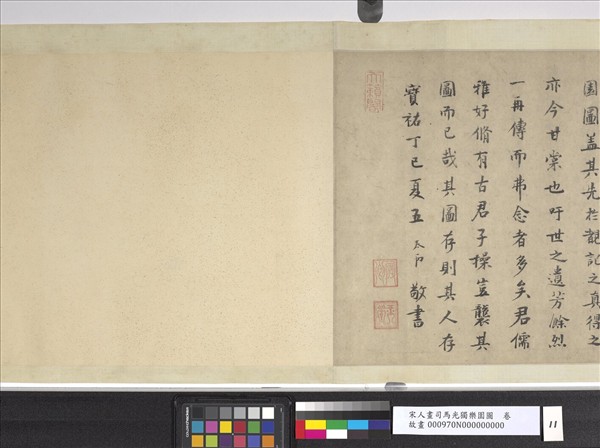 園圖蓋其先於記之真得之
亦今甘棠也吁世之遺芳餘烈
一再傳而弗念者多矣君儒
雅好脩有古君子操豈襲其
圖而已哉其圖存則其人存
寶祐丁巳夏五 敬書
宋人畫司馬光獨樂園圖 卷
故畫 000970N000000000
11